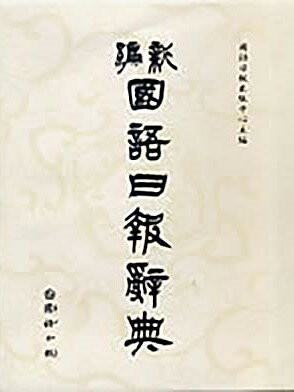 國語日報出版中心主編
新編
國語日報辭典
國語日報